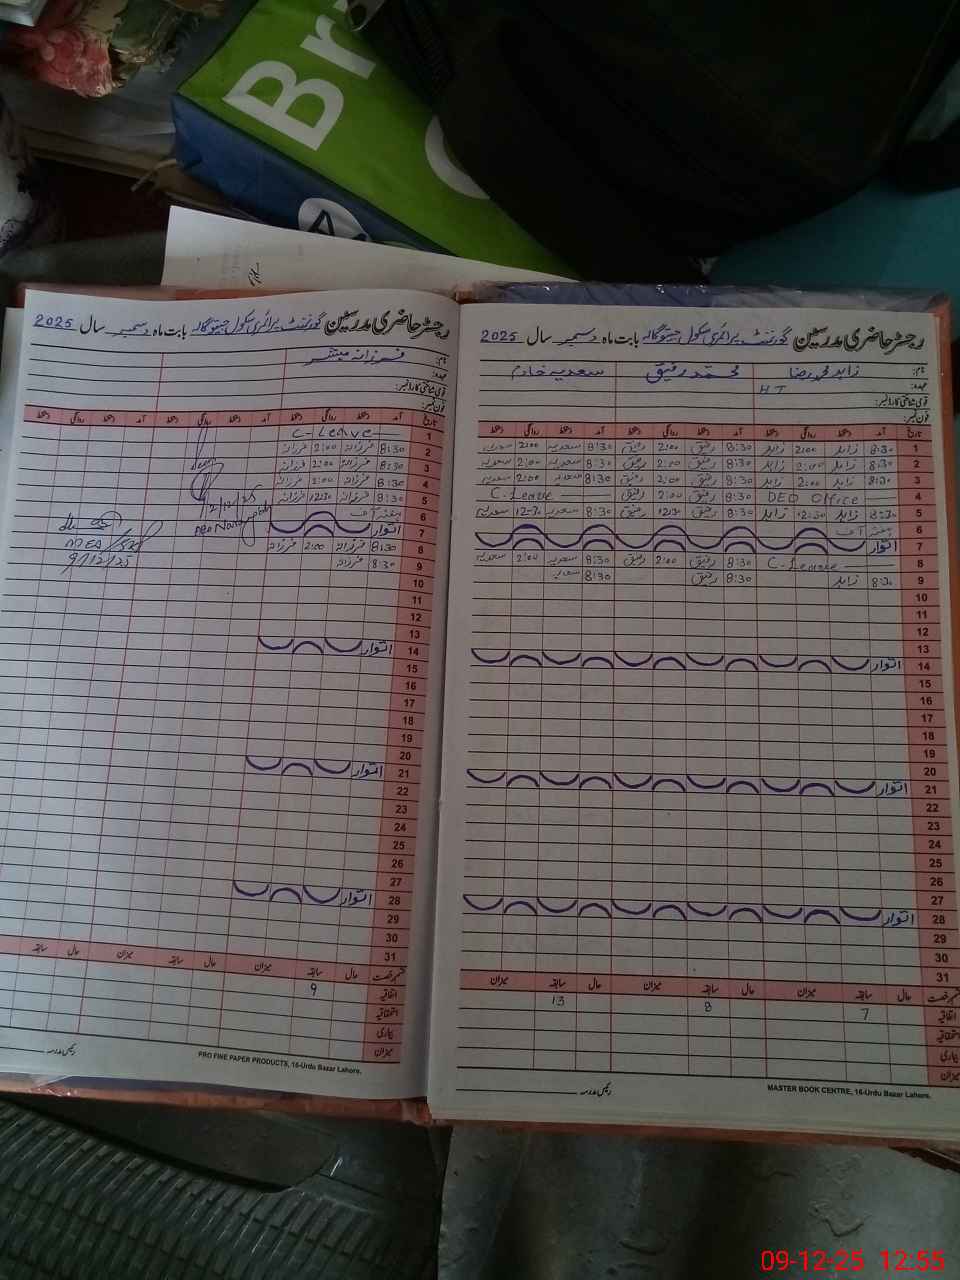 Br
رجسٹر حاضری مدرسین گورنمنٹ پرائمری سکول بابت ماہ دسمبر سال 2025
نام: زاہد محمد رضا محمد رفیق سعدیہ خادم
عہدہ: HT
قومی شناختی کارڈ نمبر:
فون نمبر:
تاریخ آمد دستخط روانگی دستخط آمد دستخط روانگی دستخط آمد دستخط روانگی دستخط
1 8:30 زاہد 2:00 زاہد 8:30 رفیق 2:00 رفیق 8:30 سعدیہ 2:00 سعدیہ
2 8:30 زاہد 2:00 زاہد 8:30 رفیق 2:00 رفیق 8:30 سعدیہ 2:00 سعدیہ
3 8:30 زاہد 2:00 زاہد 8:30 رفیق 2:00 رفیق 8:30 سعدیہ 2:00 سعدیہ
4 DEO Office 8:30 رفیق 2:00 رفیق C-Leave
5 8:30 زاہد 12:30 زاہد 8:30 رفیق 12:30 رفیق 8:30 سعدیہ 12:30 سعدیہ
6 ہفتہ آف
7 اتوار
8 C-Leave 8:30 رفیق 2:00 رفیق 8:30 سعدیہ 2:00 سعدیہ
9 8:30 زاہد 8:30 رفیق 8:30 سعدیہ
10
11
12
13
14 اتوار
15
16
17
18
19
20
21 اتوار
22
23
24
25
26
27
28 اتوار
29
30
31
حال سابقہ میزان حال سابقہ میزان حال سابقہ میزان
اتفاقیہ 7 8 13
استحقاقیہ
بیماری
میزان
رئیس مدرسہ
MASTER BOOK CENTRE, 16-Urdu Bazar Lahore.
رجسٹر حاضری مدرسین گورنمنٹ پرائمری سکول بابت ماہ دسمبر سال 2025
نام: فرزانہ
عہدہ:
قومی شناختی کارڈ نمبر:
فون نمبر:
تاریخ آمد دستخط روانگی دستخط آمد دستخط روانگی دستخط آمد دستخط روانگی دستخط
1 C-Leave
2 8:30 فرزانہ 2:00 فرزانہ
3 8:30 فرزانہ 2:00 فرزانہ
4 8:30 فرزانہ 2:00 فرزانہ
5 8:30 فرزانہ 12:30 فرزانہ
6 ہفتہ آف
7 اتوار
8 8:30 فرزانہ 2:00 فرزانہ
9 8:30 فرزانہ
10
11
12
13
14 اتوار
15
16
17
18
19
20
21 اتوار
22
23
24
25
26
27
28 اتوار
29
30
31
ADEA
9/12/25
حال سابقہ میزان حال سابقہ میزان حال سابقہ
اتفاقیہ 9
استحقاقیہ
بیماری
میزان
رئیس مدرسہ
PRO FINE PAPER PRODUCTS, 16-Urdu Bazar Lahore.
09-12-25 12:55